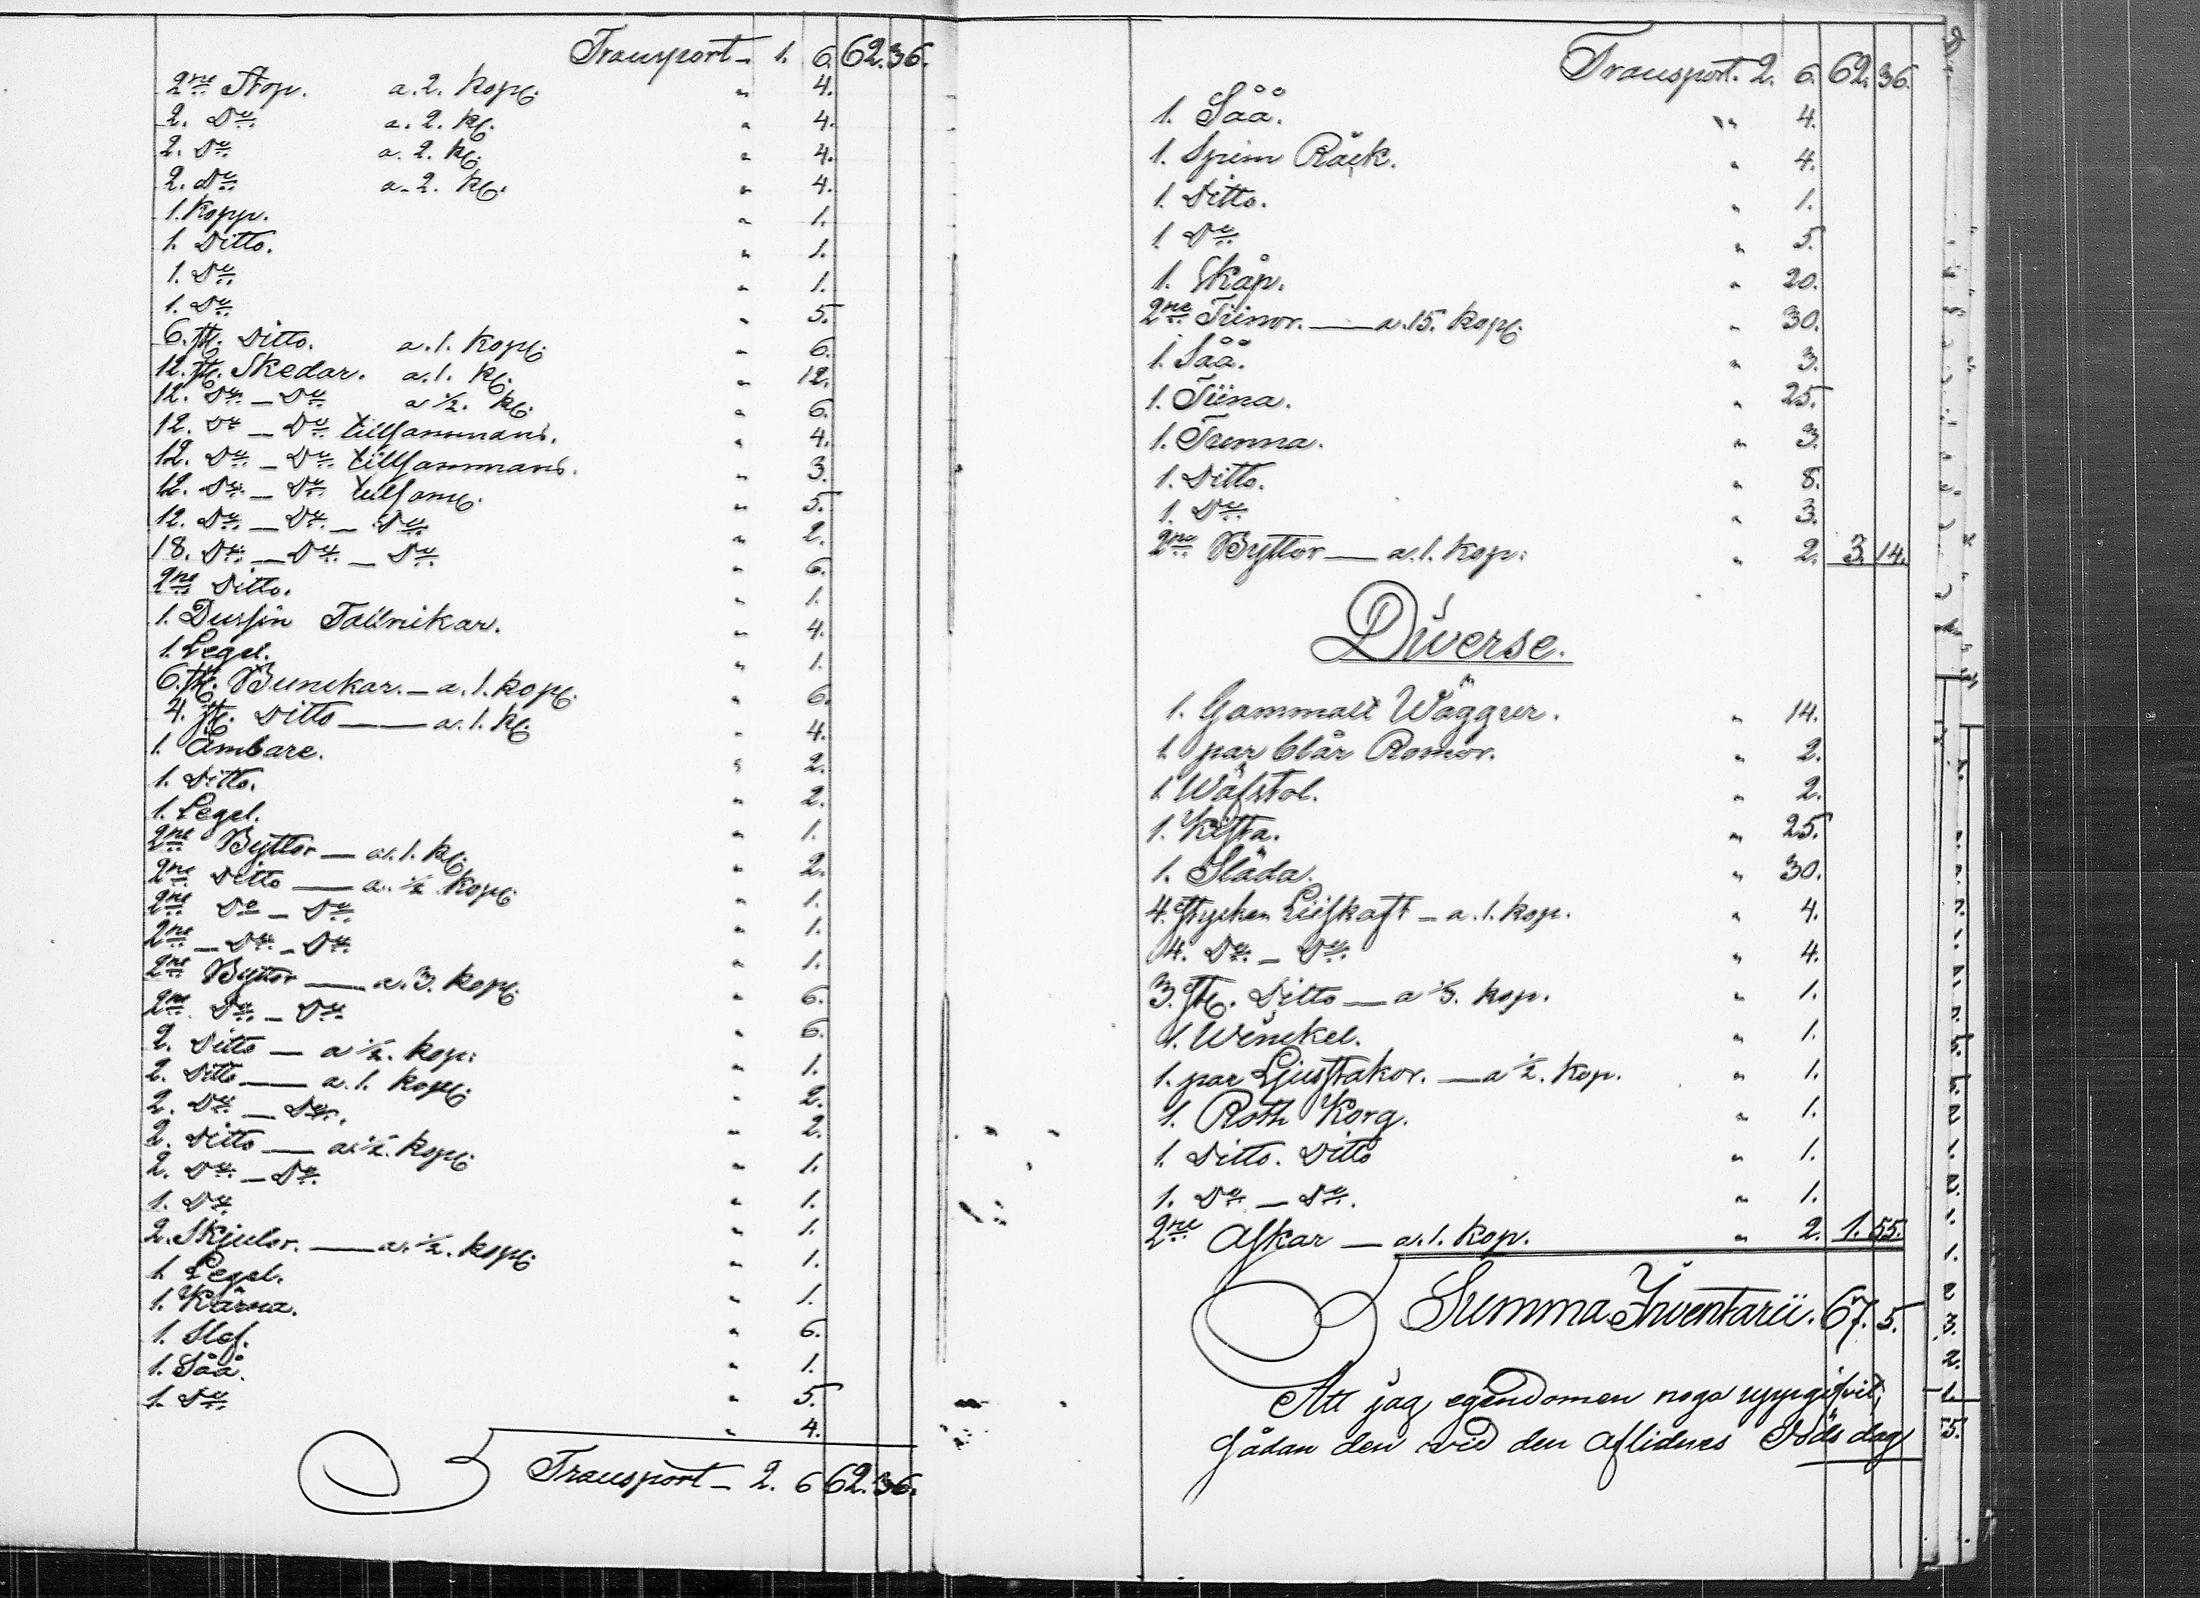 Transport - 1. 6. 62. 36.
2ne Stop. a. 2. kop: " 4.
2. Do a. 2. k: " 4.
2. Do a. 2. k: " 4.
2. Do a. 2. k: " 4.
1. Kopp. " 1.
1. Ditto. " 1.
1. Do " 1.
1. Do " 5.
6. st: Ditto. a. 1. kop: " 6.
12. st: Skedar. a. 1. k: " 12.
12. Do - Do a 1/2. k: " 6.
12. Do - Do tillsammans. " 4.
12. Do - Do tillsammans. " 3.
12. Do - Do tillsam: " 5.
12. Do - Do - Do " 2.
18. Do - Do - Do " 6.
2ne Ditto. " 1.
1. Dussin Tallrikar. " 4.
1. Legel. " 1.
6. st: Bunckar. - a. 1. kop: " 6.
4. st: Ditto - a. 1. k: " 4.
1. Ämbare. " 2.
1. Ditto. " 2.
1. Legel. " 1.
2ne Byttor - a. 1. k: " 2.
2ne Ditto - a. 1/2 kop: " 1.
2ne Do - Do " 1.
2ne - Do - Do " 1.
2ne Byttor - a. 3. kop: " 6.
2ne Do - Do " 6.
2. Ditto - a 1/2. kop: " 1.
2. Ditto - a. 1. kop: " 2.
2. Do - Do. " 2.
2. Ditto - a 1/2. kop: " 1.
2. Do - Do " 1.
1. Do " 1.
2. Skjulor. - a. 1/2. kop: " 1.
1. Legel. " 1.
1. Kärna. " 6.
1. Slef. " 1.
1. Såå. " 5.
1. Do " 4.
Transport - 2. 6 62. 36.
Transport. 2. 6. 62. 36.
1. Såå. " 4.
1. Spinn Råck. " 4.
1. Ditto. " 1.
1. Do " 5.
1. Skåp. " 20.
2ne Tiinor. - a. 15. kop: " 30.
1. Såå. " 3.
1. Tiina. " 25.
1. Tunna. " 3.
1. Ditto. " 8.
1. Do " 3.
2ne Byttor - a. 1. kop: " 2. 3. 14.
Diverse.
1. Gammalt Wäggur. " 14.
1. par Clår Romor. " 2.
1. Wäfstol. " 2.
1. Kista. " 25.
1. Släda. " 30.
4. stycken Liiskaft - a. 1. kop. " 4.
4. Do - Do " 4.
3. st: Ditto - a 1/3. kop. " 1.
1. Winckel. " 1.
1. par Ljusstakor. - a 1/2. kop. " 1.
1. Roth Korg. " 1.
1. Ditto. Ditto " 1.
1. Do - Do. " 1.
2ne Askar - a. 1. kop. " 2. 1. 55.
Summa Inventarii. 67. 5.
Att jag egendomen noga uppgifvit,
sådan den vid den aflidnes Döds dag